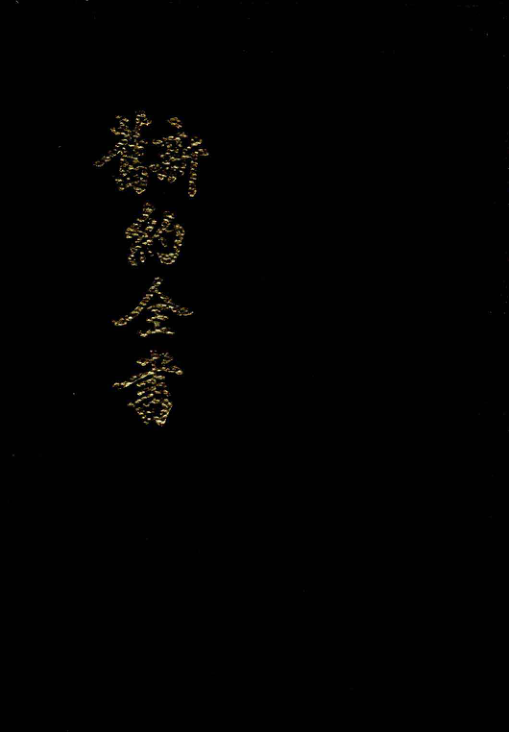 新舊約全書